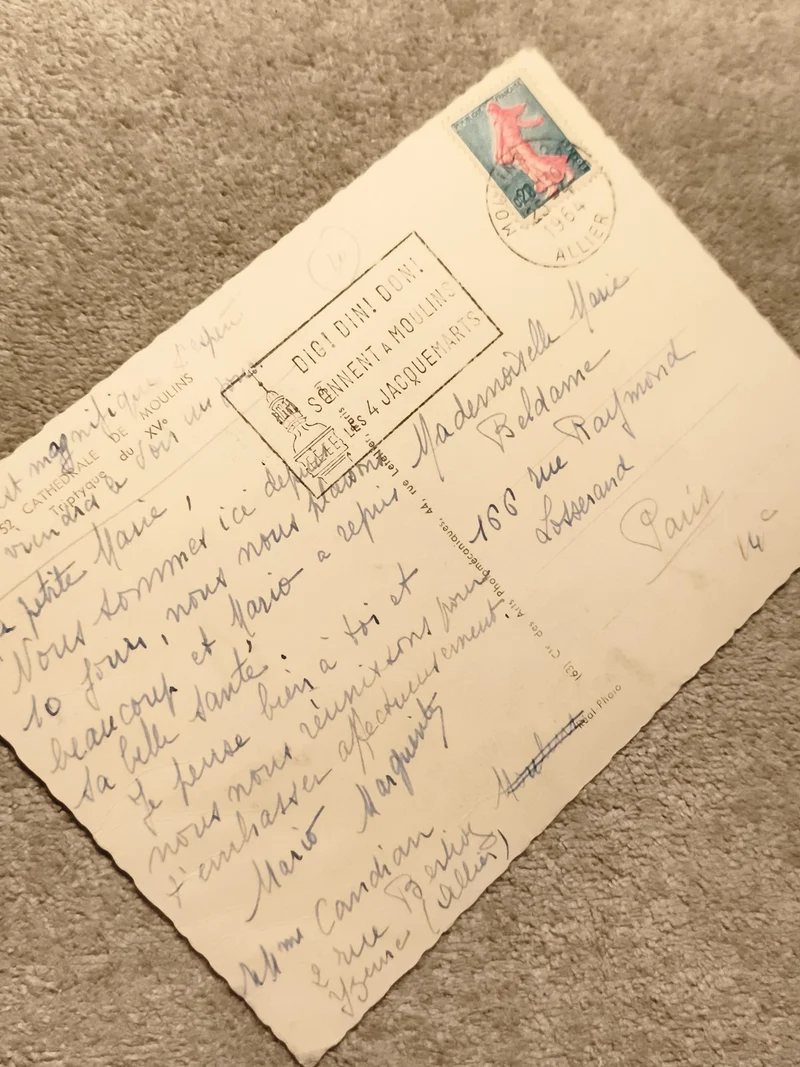 0,20
1964
ALLIER
DIG! DIN! DON!
SONNENT A MOULINS
LES 4 JACQUEMARTS
est magnifique
52 CATHEDRALE DE MOULINS
Triptyque du XVe
le soir un
petite Marie,
Nous sommes ici depuis
10 jours, nous nous plaisons
beaucoup et Mario a repris
sa belle santé.
Je pense bien à toi et
nous nous réunissons pour
t'embrasser affectueusement.
Mario Marguerite
Mme Candian
2 rue
(Allier)
Moulins
Cie des Arts Photomécaniques, 44, rue Letellier, Paris
Réal-Photo
Mademoiselle Marie
Beldame
166 rue Raymond
Losserand
Paris
14e